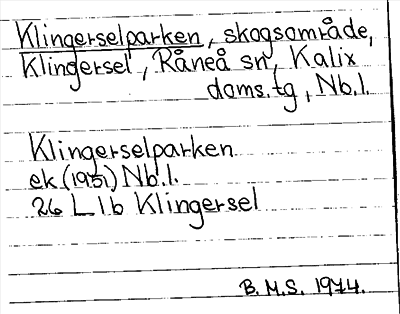 Klingerselparken, skogsområde,
Klingersel, Råneå sn, Kalix
doms.tg, Nb.l.
Klingerselparken
ek (1951) Nb.l.
26 L 1b Klingersel
B.M.S. 1974.